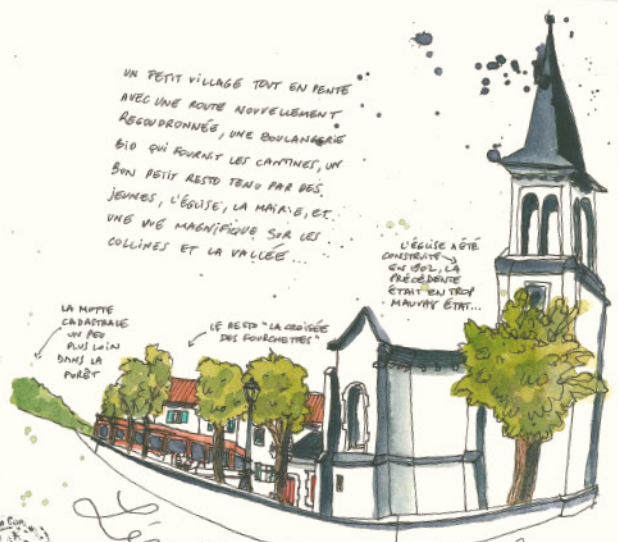 UN PETIT VILLAGE TOUT EN PENTE
AVEC UNE ROUTE NOUVELLEMENT
REGOUDRONNÉE, UNE BOULANGERIE
BIO QUI FOURNIT LES CANTINES, UN
BON PETIT RESTO TENU PAR DES
JEUNES, L'ÉGLISE, LA MAIRIE, ET
UNE VUE MAGNIFIQUE SUR LES
COLLINES ET LA VALLÉE...
L'ÉGLISE A ÉTÉ
CONSTRUITE
EN 1902, LA
PRÉCÉDENTE
ÉTAIT EN TROP
MAUVAIS ÉTAT...
LA MOTTE
CADASTRALE
UN PEU
PLUS LOIN
DANS LA
FORÊT
LE RESTO "LA CROISÉE
DES FOURCHETTES"